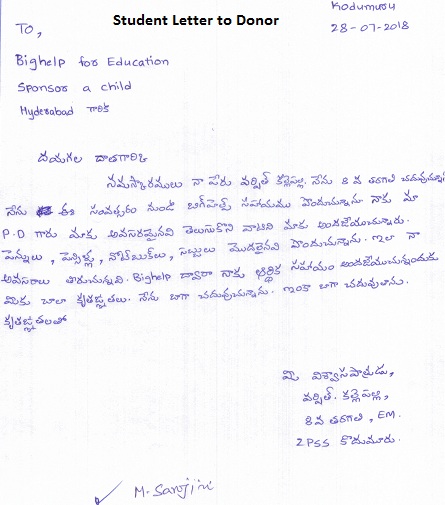 Student Letter to Donor
Kodumuru
28-07-2018
To,
Bighelp for Education
Sponsor a child
Hyderabad గారికి
దయగల దాతగారికి
నమస్కారములు నా పేరు వర్షిత్ కల్లెపల్లి. నేను 8 వ తరగతి చదువుచున్నా
నేను ఈ సంవత్సరం నుండి బిగ్‌హెల్ప్ సహాయము పొందుచున్నాను నాకు మా
P.D గారు మాకు అవసరమైనవి తెలుసుకొని వాటిని మాకు అందజేయుచున్నారు.
పెన్నులు, పెన్సిళ్లు, నోట్‌బుక్‌లు, సబ్బులు మొదలైనవి పొందుచున్నాను. ఇలా నా
అవసరాలు తీరుచున్నవి. Bighelp ద్వారా నాకు ఆర్థిక సహాయం అందజేయుచున్నందుకు
మీకు చాలా కృతజ్ఞతలు. నేను బాగా చదువుచున్నాను. ఇంకా బాగా చదువుతాను.
కృతజ్ఞతలతో
మీ విశ్వాసపాత్రుడు,
వర్షిత్. కల్లెపల్లి,
8 వ తరగతి, EM.
ZPSS కొదుమూరు.
M. Sarojini